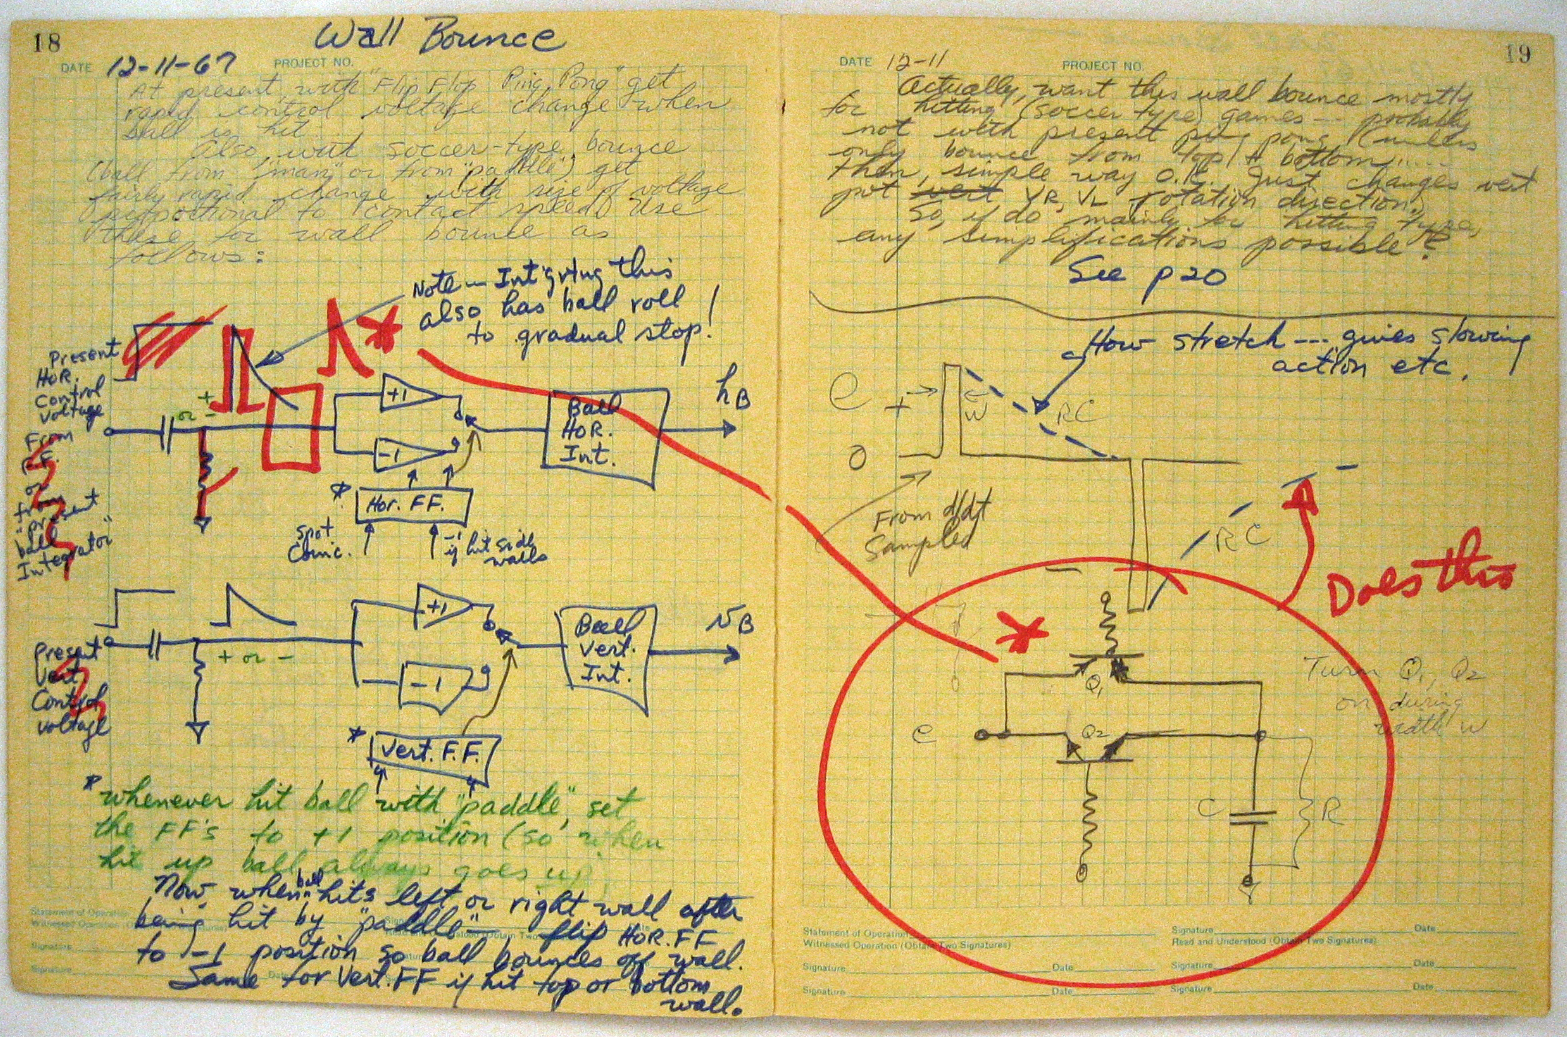 18
Wall Bounce
DATE 12-11-67 PROJECT NO.
At present, with "Flip Flop Ping Pong" get
rapid control voltage change when
ball is hit.
Also, with soccer-type bounce
(ball from "man" or from "paddle") get
fairly rapid change with size of voltage
proportional to "contact speed". Use
these for wall bounce as
follows:
Note — Int'gring this
also has ball roll
to gradual stop!
Present
HOR.
Control
Voltage
From
F.F.
or
from
"present
ball
Integrator"
+
or -
+1
-1
Ball
HOR.
Int.
hB
* Hor. FF.
Spot
Coinc.
-1
if hit side
walls
Present
Vert
Control
voltage
+ or -
+1
-1
Ball
Vert.
Int.
vB
* Vert. F.F.
* whenever hit ball with "paddle", set
the FF's to +1 position (so when
hit up ball always goes up)
Now, when ball hits left or right wall after
being hit by "paddle" flip HOR. FF
to -1 position so ball bounces off wall.
Same for Vert. FF if hit top or bottom
wall.
Statement of Operation
Witnessed Operation (Obtain Two Signatures)
Signature Date
Signature Date
19
DATE 12-11 PROJECT NO.
Actually, want this wall bounce mostly
for hitting (soccer type) games --- probably
not with present ping pong (unless
only bounce from top & bottom .....
then, simple way O.K. Just changes vert
pot vert VR, VL rotation direction)
So, if do mainly for hitting type,
any simplifications possible?
See p 20
How stretch --- gives slowing
action etc.
e +
w
RC
0
From d/dt
Sampled
RC
Does this
*
Q1
Turn Q1, Q2
on during
width w
e
Q2
C
R
Statement of Operation
Witnessed Operation (Obtain Two Signatures)
Signature Date
Signature Date
Signature Date
Read and Understood (Obtain Two Signatures)
Signature Date
Signature Date